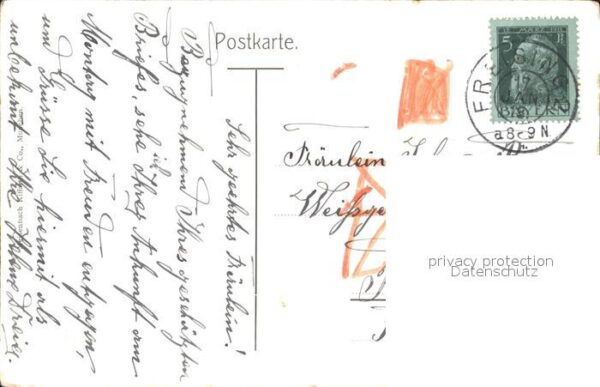 Postkarte.
Sehr geehrtes Fräulein!
Bezugnehmend Ihres geschätzten
Briefes, sehe ich Ihrer Ankunft am
Montag mit Freuden entgegen,
um Grüsse Sie hiermit als
unbekannt Ihre Helene
Fräulein
Weißge
5
FREISING
17
JAN
12
a8-9N
privacy protection
Datenschutz